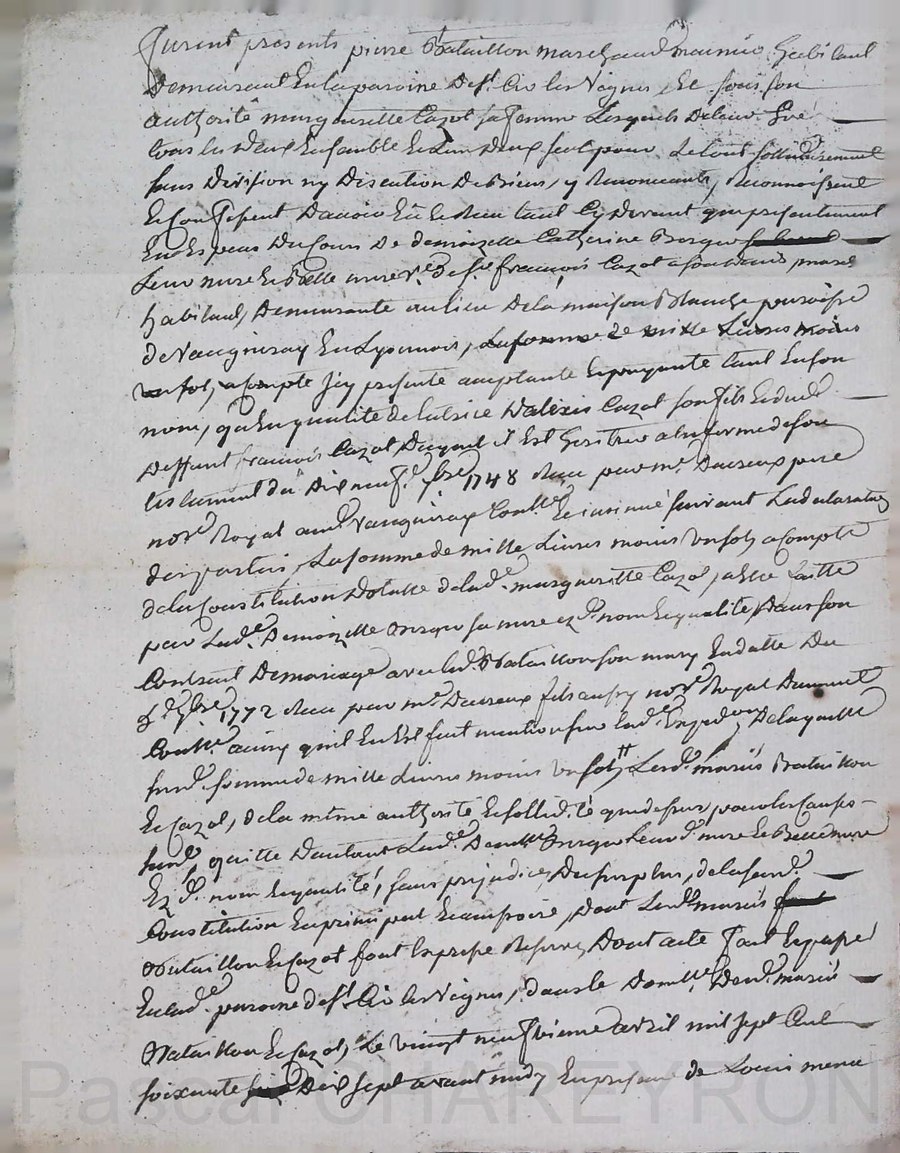 furent presents pierre Bataillon marchand meunier habitant
demeurant en la paroisse de St Cir les Vignes, Et sous son
authorité margueritte Cazot sa femme Lesquels de leur gré
tous les deux Ensemble et L'un deux seul pour Le tout sollidairement
sans division ny discution de biens, y Renonceants, Reconnoissent
et Confessent davoir Eu et Reçu tant Cy devant que presentement
En Especes du Cours de demoizelle Catherine
Leur mere et Belle mere ve de sr françois Cazot a son vivant marcd
habitant, demeurante au lieu de la maison Blanche paroisse
de Vaugneray En Lyonnois, La somme de mille Livres moins
un sol, a Compte Icy presente acceptante Et payante tant En son
nom, qu'En qualité de tutrice d'alexis Cazot son fils et dud.
deffunt françois Cazot duquel il Est heritier a la forme de son
testament du dix neuf 9bre 1748 Reçu par me pere
nore Royal aud. Vaugneray Conllé Et insinué suivant La declaration
des parties, La somme de mille Livres moins un sol a Compte
de la Constitution dotalle de lad. margueritte Cazot, a Elle faitte
par Lad. demoizelle sa mere ezd. nom Et qualité, dans son
Contract de mariage avec led. Bataillon son mary En datte du
7bre 1772 Reçu par me fils aussy nore Royal
Conllé ainsy qu'il En Est fait mention sur lad. Expedon, de laquelle
susd. somme de mille Livres moins un sol, Lesd. mariés Bataillon
Et Cazot, de la même authorité Et sollidité que dessus,
susd. quitte d'autant Lad. demlle leurd. mere Et Belle mere
Ezd. nom Et qualité, sans prejudice du surplus, de la susd.
Constitution En principal Et accessoire, dont Lesd. mariés
Bataillon Et Cazot font Expresse Reserve, dont acte fait Et passé
En lad. paroisse de St Cir les Vignes, dans le domlle desd. mariés
Bataillon Et Cazot, Le vingt neufvieme avril mil sept Cent
soixante dix sept avant midy En presence de Louis
Pascal CHAREYRON